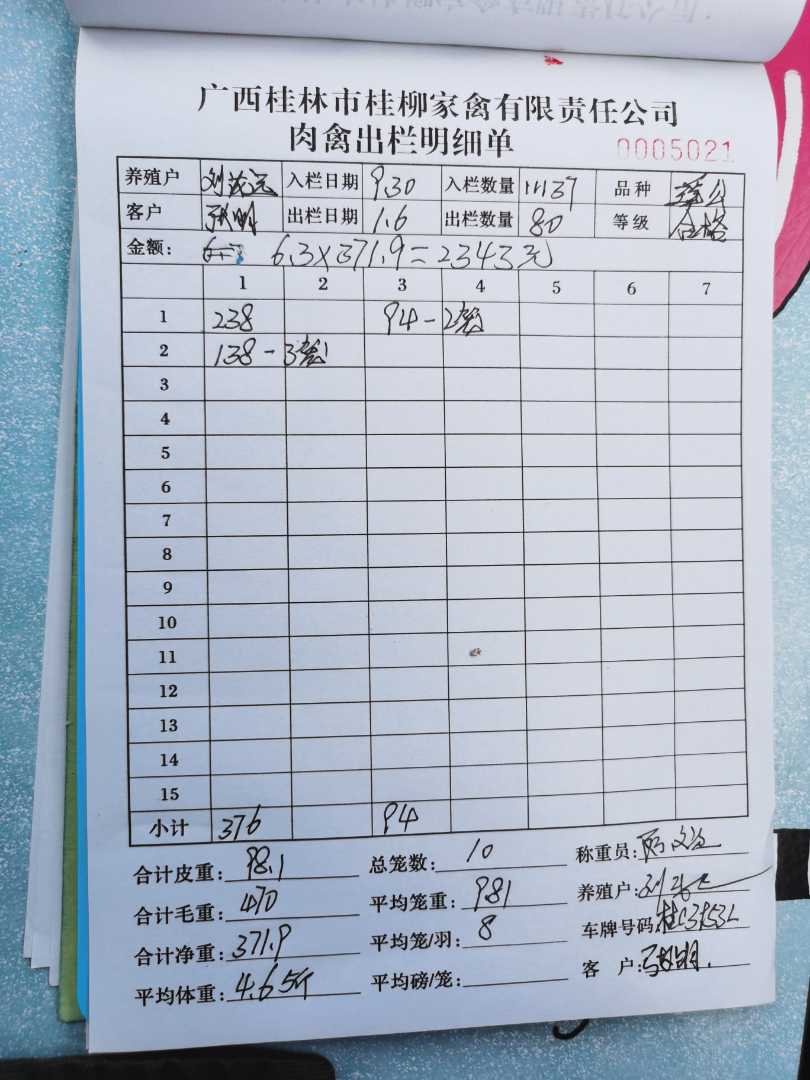 广西桂林市桂柳家禽有限责任公司
肉禽出栏明细单
0005021
养殖户 刘 入栏日期 9.30 入栏数量 品种
客户 张明 出栏日期 1.6 出栏数量 80 等级 合格
金额： 6.3×371.9=2343元
1 2 3 4 5 6 7
1 238 94-2
2 138-3
3
4
5
6
7
8
9
10
11
12
13
14
15
小计 376 94
合计皮重：98.1 总笼数：10 称重员：
合计毛重：470 平均笼重：981 养殖户：刘
合计净重：371.9 平均笼/羽：8 车牌号码：桂C
平均体重：4.65斤 平均磅/笼： 客户：张明